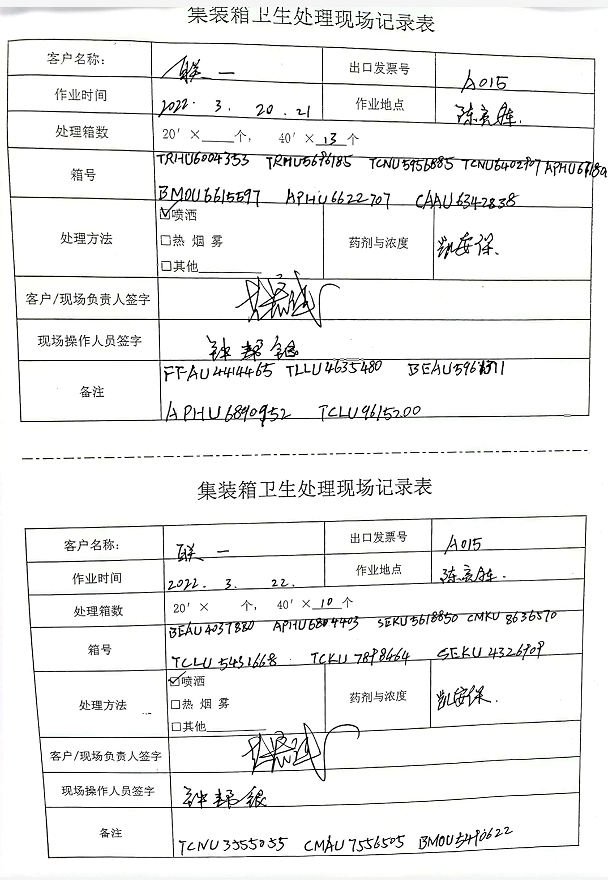 集装箱卫生处理现场记录表
客户名称: 联一 出口发票号 A015
作业时间 2022. 3. 20 . 21 作业地点
处理箱数 20′×____个, 40′×13个
箱号 TRHU6004353 TRHU5696185 TCNU5956885 TCNU6402907
BMOU6615597 APHU6622707 CAAU6342838
处理方法 ☑喷洒 药剂与浓度 凯安保.
☐热 烟 雾
☐其他________
客户/现场负责人签字
现场操作人员签字 钟邦银
备注 FFAU4414465 TLLU4635480
APHU6890952 TCLU9615200
集装箱卫生处理现场记录表
客户名称: 联一 出口发票号 A015
作业时间 2022. 3. 22. 作业地点
处理箱数 20′× 个, 40′×10个
箱号 BEAU4037880 APHU6804403 SEKU5618850 CMKU8636570
TCLU5431668 TCKU7898664 SEKU4326909
处理方法 ☑喷洒 药剂与浓度 凯安保.
☐热 烟 雾
☐其他________
客户/现场负责人签字
现场操作人员签字 钟邦银
备注 TCNU3555055 CMAU7556505 BMOU5490622